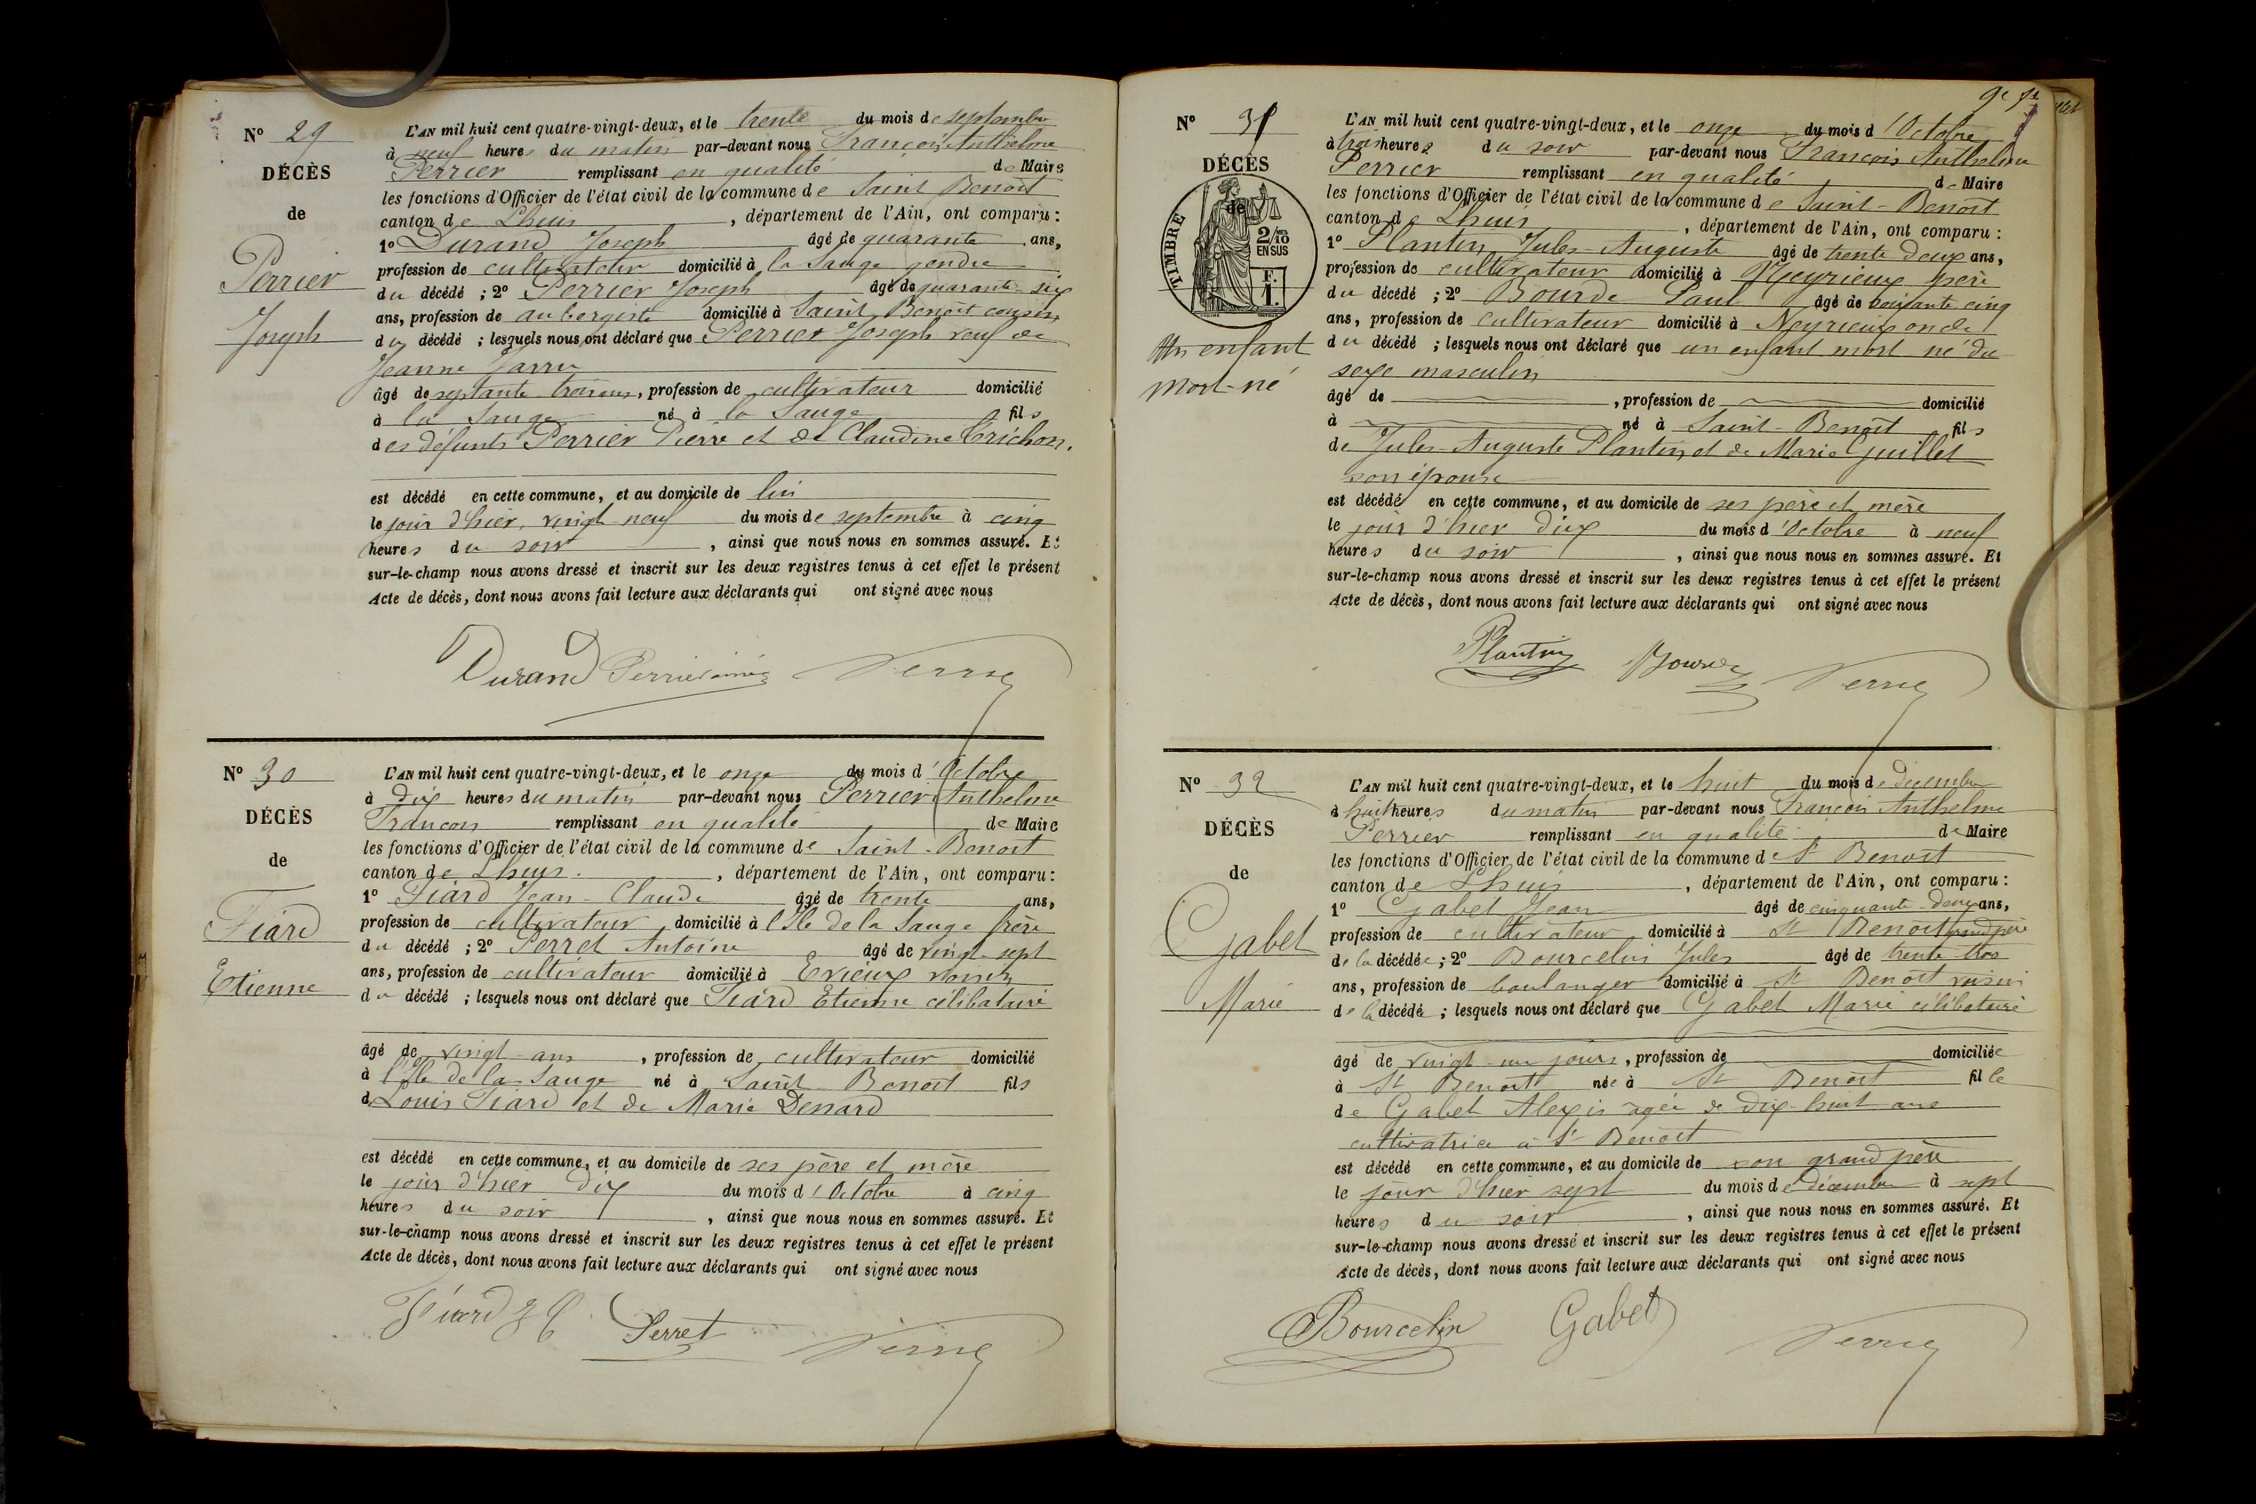 N° 29
DÉCÈS
de
Perrier
Joseph
L'AN mil huit cent quatre-vingt-deux, et le trente du mois de septembre
à neuf heures du matin par-devant nous François Anthelme
Perrier remplissant en qualité de Maire
les fonctions d'Officier de l'état civil de la commune de Saint Benoit
canton de Lhuis, département de l'Ain, ont comparu :
1° Durand Joseph âgé de quarante ans,
profession de cultivateur domicilié à la Sauge gendre
du décédé ; 2° Perrier Joseph âgé de quarante-six
ans, profession de aubergiste domicilié à Saint Benoit cousin
du décédé ; lesquels nous ont déclaré que Perrier Joseph veuf de
Jeanne
âgé de septante trois ans, profession de cultivateur domicilié
à la Sauge né à la Sauge fils
des défunts Perrier Pierre et de Claudine Trichon.
est décédé en cette commune, et au domicile de lui
le jour d'hier, vingt neuf du mois de septembre à cinq
heures du soir, ainsi que nous nous en sommes assuré. Et
sur-le-champ nous avons dressé et inscrit sur les deux registres tenus à cet effet le présent
Acte de décès, dont nous avons fait lecture aux déclarants qui ont signé avec nous
Durand Perrier Perrier
N° 30
DÉCÈS
de
Fiard
Etienne
L'AN mil huit cent quatre-vingt-deux, et le onze du mois d'Octobre
à dix heures du matin par-devant nous Perrier Anthelme
François remplissant en qualité de Maire
les fonctions d'Officier de l'état civil de la commune de Saint-Benoit
canton de Lhuis., département de l'Ain, ont comparu :
1° Fiard Jean-Claude âgé de trente ans,
profession de cultivateur domicilié à l'Ile de la Sauge frère
du décédé ; 2° Perret Antoine âgé de vingt-sept
ans, profession de cultivateur domicilié à Evieux voisin
du décédé ; lesquels nous ont déclaré que Fiard Etienne célibataire
âgé de vingt ans, profession de cultivateur domicilié
à l'Ile de la Sauge né à Saint Benoit fils
d Louis Fiard et de Marie Denard
est décédé en cette commune, et au domicile de ses père et mère
le jour d'hier dix du mois d'Octobre à cinq
heures du soir, ainsi que nous nous en sommes assuré. Et
sur-le-champ nous avons dressé et inscrit sur les deux registres tenus à cet effet le présent
Acte de décès, dont nous avons fait lecture aux déclarants qui ont signé avec nous
Fiard J C Perret Perrier
N° 31
DÉCÈS
de
TIMBRE
2/10 EN SUS
F. 1.
Un enfant
mort-né
L'AN mil huit cent quatre-vingt-deux, et le onze du mois d'Octobre
à trois heures du soir par-devant nous François Anthelme
Perrier remplissant en qualité de Maire
les fonctions d'Officier de l'état civil de la commune de Saint-Benoit
canton de Lhuis, département de l'Ain, ont comparu :
1° Plantin Jules-Auguste âgé de trente deux ans,
profession de cultivateur domicilié à Neyrieux père
du décédé ; 2° Bourde Paul âgé de soixante cinq
ans, profession de cultivateur domicilié à Neyrieux oncle
du décédé ; lesquels nous ont déclaré que un enfant mort né du
sexe masculin
âgé de, profession de domicilié
à né à Saint-Benoit fils
de Jules-Auguste Plantin et de Marie Guillet
son épouse
est décédé en cette commune, et au domicile de ses père et mère
le jour d'hier dix du mois d'Octobre à neuf
heures du soir, ainsi que nous nous en sommes assuré. Et
sur-le-champ nous avons dressé et inscrit sur les deux registres tenus à cet effet le présent
Acte de décès, dont nous avons fait lecture aux déclarants qui ont signé avec nous
Plantin Bourde Perrier
N° 32
DÉCÈS
de
Gabet
Marie
L'AN mil huit cent quatre-vingt-deux, et le huit du mois de décembre
à huit heures du matin par-devant nous François Anthelme
Perrier remplissant en qualité de Maire
les fonctions d'Officier de l'état civil de la commune de St Benoit
canton de Lhuis, département de l'Ain, ont comparu :
1° Gabet Jean âgé de cinquante-deux ans,
profession de cultivateur domicilié à St Benoit grand père
de la décédée ; 2° Bourcelin Jules âgé de trente trois
ans, profession de boulanger domicilié à St Benoit voisin
de la décédée ; lesquels nous ont déclaré que Gabet Marie célibataire
âgé de vingt-un jours, profession de domiciliée
à St Benoit née à St Benoit fille
de Gabet Alexis agée de dix-huit ans
cultivatrice à St Benoit
est décédé en cette commune, et au domicile de son grand père
le jour d'hier sept du mois de décembre à sept
heures du soir, ainsi que nous nous en sommes assuré. Et
sur-le-champ nous avons dressé et inscrit sur les deux registres tenus à cet effet le présent
Acte de décès, dont nous avons fait lecture aux déclarants qui ont signé avec nous
Bourcelin Gabet Perrier